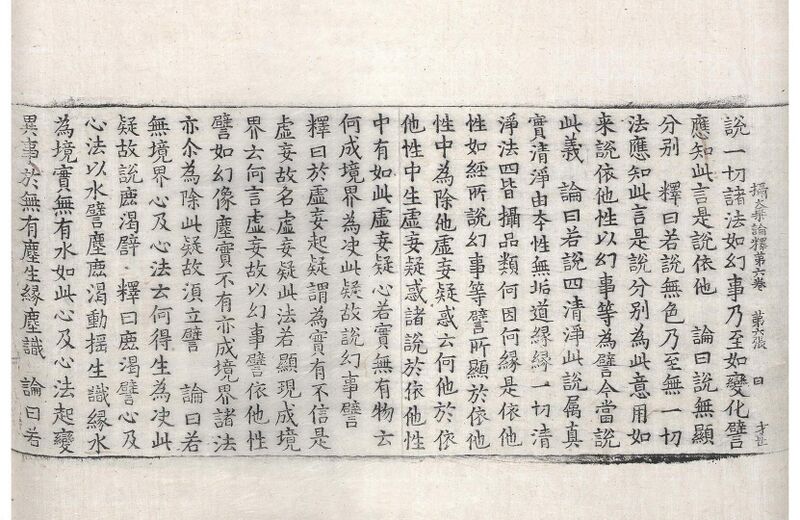 攝大乗論釋第六卷 第六張 日
說一切諸法如幻事乃至如變化譬
應知此言是說依他 論曰說無顯
分別 釋曰若說無色乃至無一切
法應知此言是說分別為此意用如
来說依他性以幻事等為譬今當說
此義 論曰若說四清淨此說属真
實清淨由本性無垢道緣緣一切清
淨法四皆攝品類何因何緣是依他
性如經所說幻事等譬所顯於依他
性中為除他虛妄疑惑云何他於依
他性中生虛妄疑惑諸說於依他性
中有如此虛妄疑心若實無有物云
何成境界為决此疑故說幻事譬
釋曰於虛妄起疑謂為實有不信是
虛妄故名虛妄疑此法若顯現成境
界云何言虛妄故以幻事譬依他性
譬如幻像塵實不有亦成境界諸法
亦尒為除此疑故須立譬 論曰若
無境界心及心法云何得生為决此
疑故說鹿渴譬 釋曰鹿渴譬心及
心法以水譬塵鹿渴動揺生識緣水
為境實無有水如此心及心法起變
異事於無有塵生緣塵識 論曰若